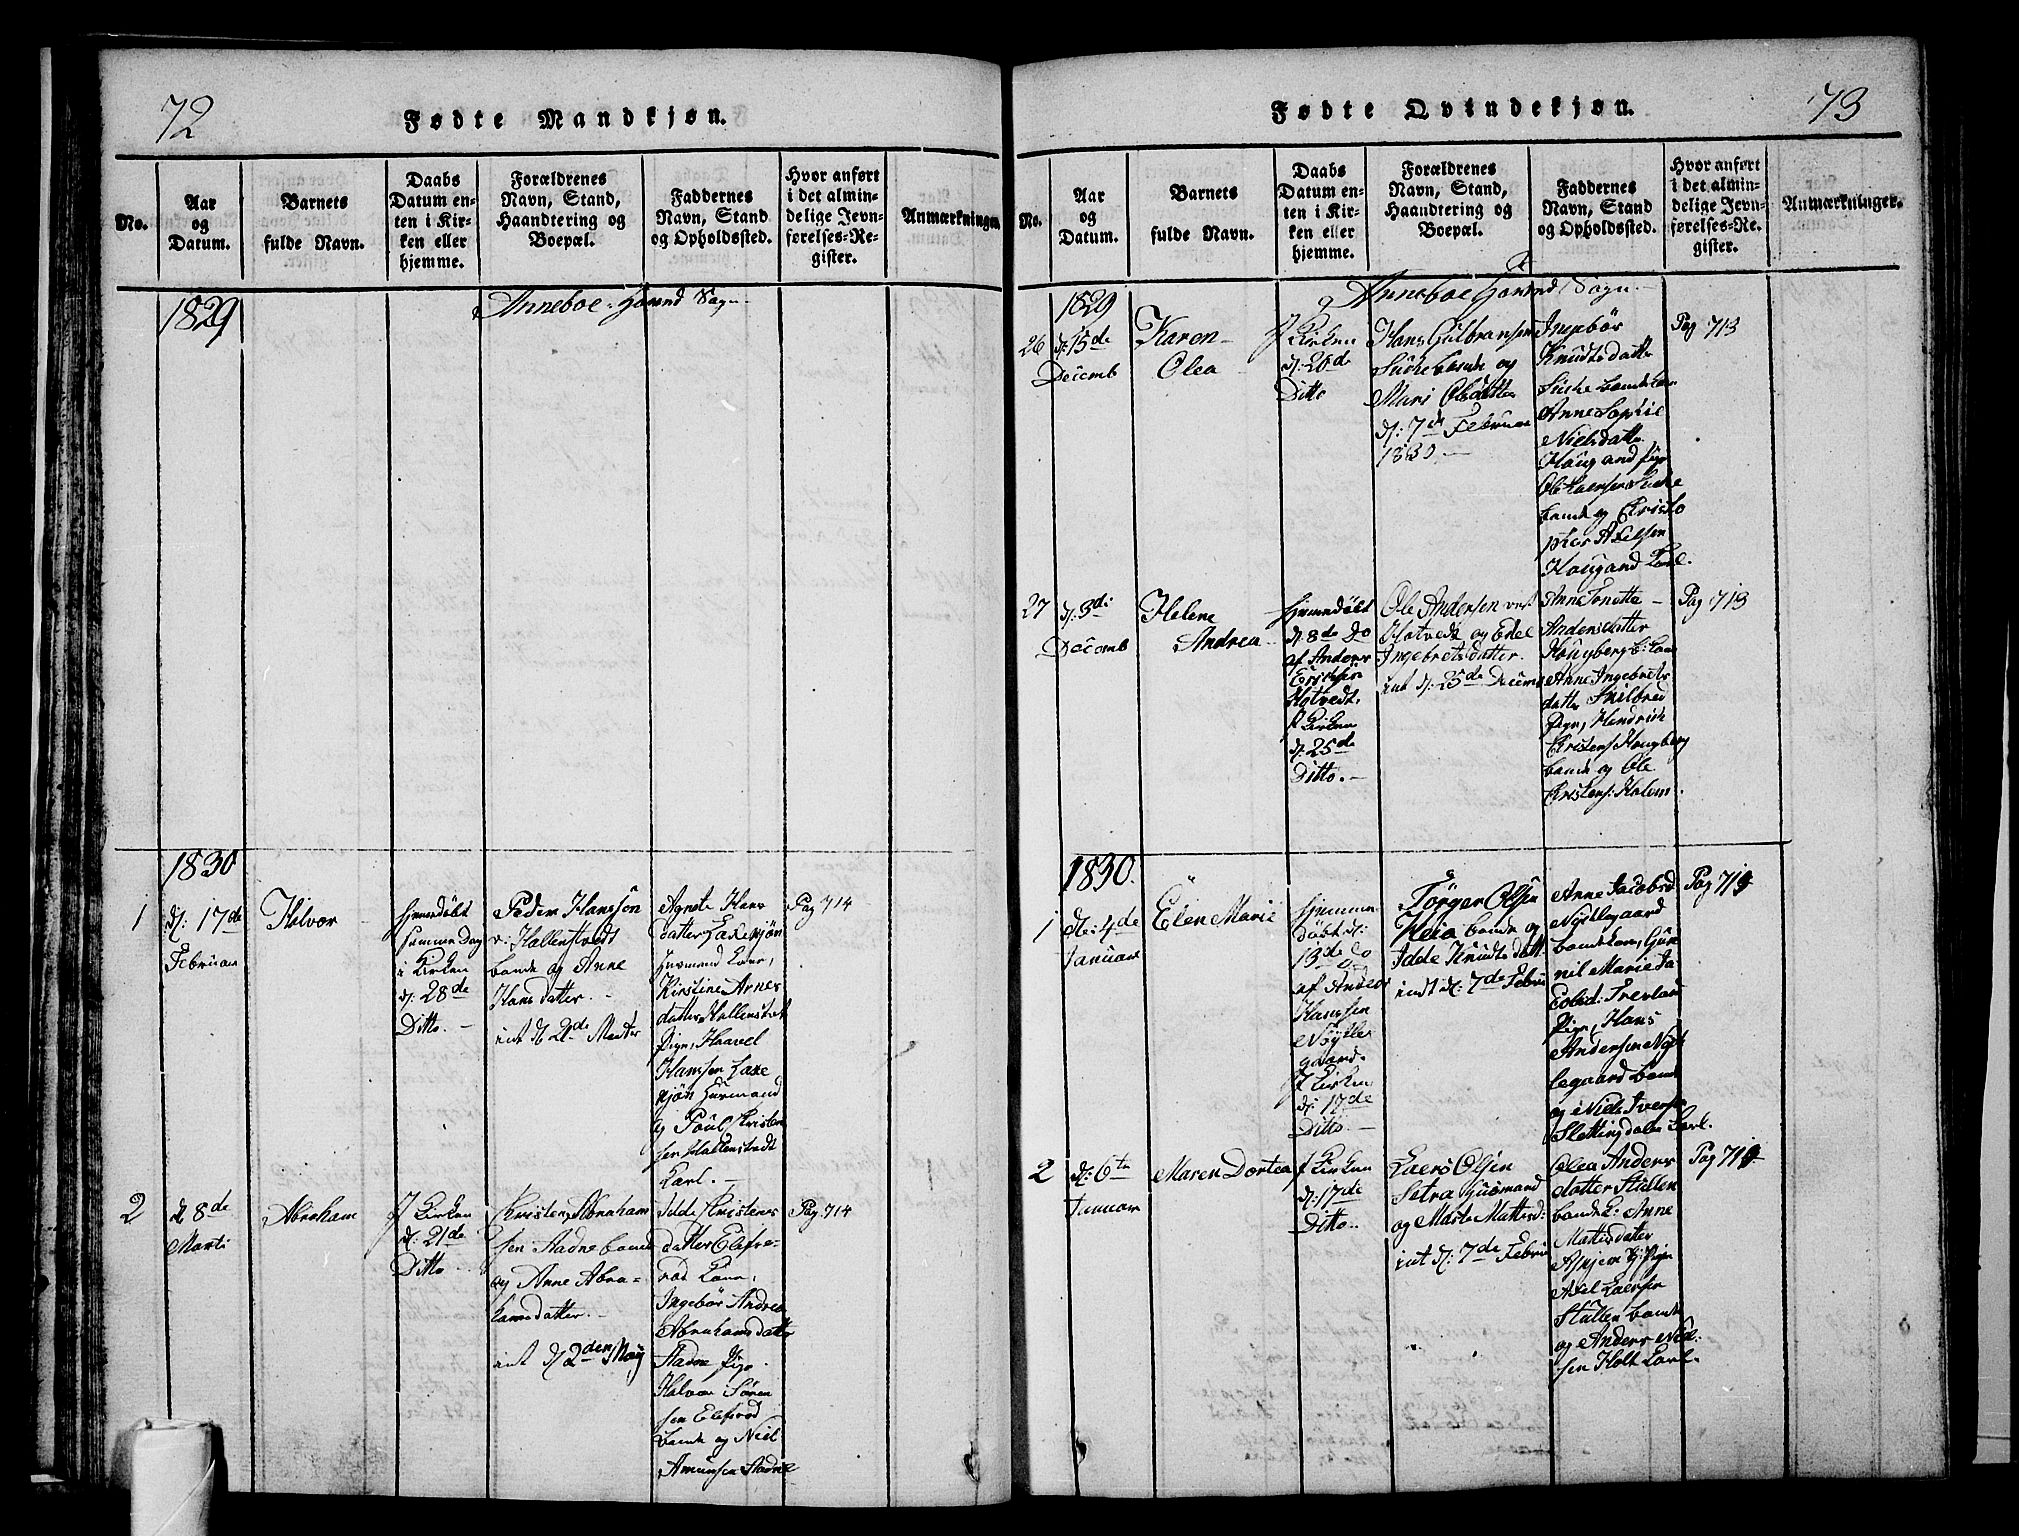 72
Fødte Mandkjøn.
No.
Aar
og
Datum.
Barnets
fulde Navn.
Daabs
Datum en-
ten i Kir-
ken eller
hjemme.
Forældrenes
Navn, Stand,
Haandtering og
Boepæl.
Faddernes
Navn, Stand
og Opholdssted.
Hvor anført
i det almin-
delige Jevn-
førelses-Re-
gister.
Anmærkninger.
1829
Anneboe Sogn
1830
1
d: 17de
Februar
Halvor
Hjemmedøbt
samme Dag
i Kirken
d: 28de
Ditto.
Peder Hansson
v: Hallenstvedt
bonde og Anne
Hans datter.
int d 21de Marter
Agnete Hans
datter
Husmand
Kirstine Arnes
datter Hallenstvet
Pige, Haavel
Hansen
Husmand
og Poul Kristen
sen Hallenstvedt
Karl.
Pag 714
2
d 8de
Marti
Abraham
J Kirken
d: 21de
Ditto
Kristen Abraham
sen Aadne bonde
og Anne Abra-
hamsdatter.
int d 2den May
Kristens
datter
Ingebør Andrea
Abrahamsdatter
Aadne Pige
Halvor Søren
sen
bonde og Niel
Amunsen Aadne
Pag 714
73
Fødte Qvindekjøn.
No.
Aar
og
Datum.
Barnets
fulde Navn.
Daabs
Datum en-
ten i Kir-
ken eller
hjemme.
Forældrenes
Navn, Stand,
Haandtering og
Boepæl.
Faddernes
Navn, Stand
og Opholdssted.
Hvor anført
i det almin-
delige Jevn-
førelses-Re-
gister.
Anmærkninger.
1829
Anneboe Sogn
26
d: 15de
Decemb
Karen
Olea
J Kirken
d: 26de
Ditto
Hans Gulbransen
og
Mari Olsdatter
d: 7de Februar
1830
Ingebør
Knudsdatter
Anne Sophie
Nielsdatter
Hougand pige
bonde og Christo
pher Axelsen
Hougand Karl.
Pag 713
27
d: 3di
Decemb
Helene
Andrea
Hjemmedøbt
d: 8de Do
af Anders
Erichsen
Hotvedt,
J Kirken
d: 25de
Ditto.
Ole Andersen
Hotvedt og Edel
Ingebretsdatter.
int d: 25de Decemb
Anne Tonette
Andersdatter
Hougberg
Anne Ingebrets
datter
Pige, Hendrich
Kristens: Hougberg
bonde og Ole
Kristens: Holem.
Pag 713
1830.
1
d: 4de
Januar
Elen Marie
Hjemme
døbt d:
13de do
af Anders
Hanssen
Nøytle
gaard.
J Kirken
d: 17de
Ditto.
Torger Olsen
Heia bonde og
Idde Knudts datt
int d: 7de Febru
Anne Jacobsd
Nøytlegaard
Gun
nil Marie Ja
cobsd:
Pige, Hans
Andersen Nøyt
legaard bonde
og Niels Iversen
Slettingdalen Karl.
Pag 719
2
d: 6te
Januar
Maren Dortea
J Kirken
d: 17de
Ditto.
Laers Olsen
Setra Husmand
og Marte Mattisd:
int d: 7de Febru
Olea Anders
datter Stullen
Anne
Mattisdatter
Pige
Axel Laersen
Stullen bonde
og Anders Niel
sen Holt Karl.
Pag 719